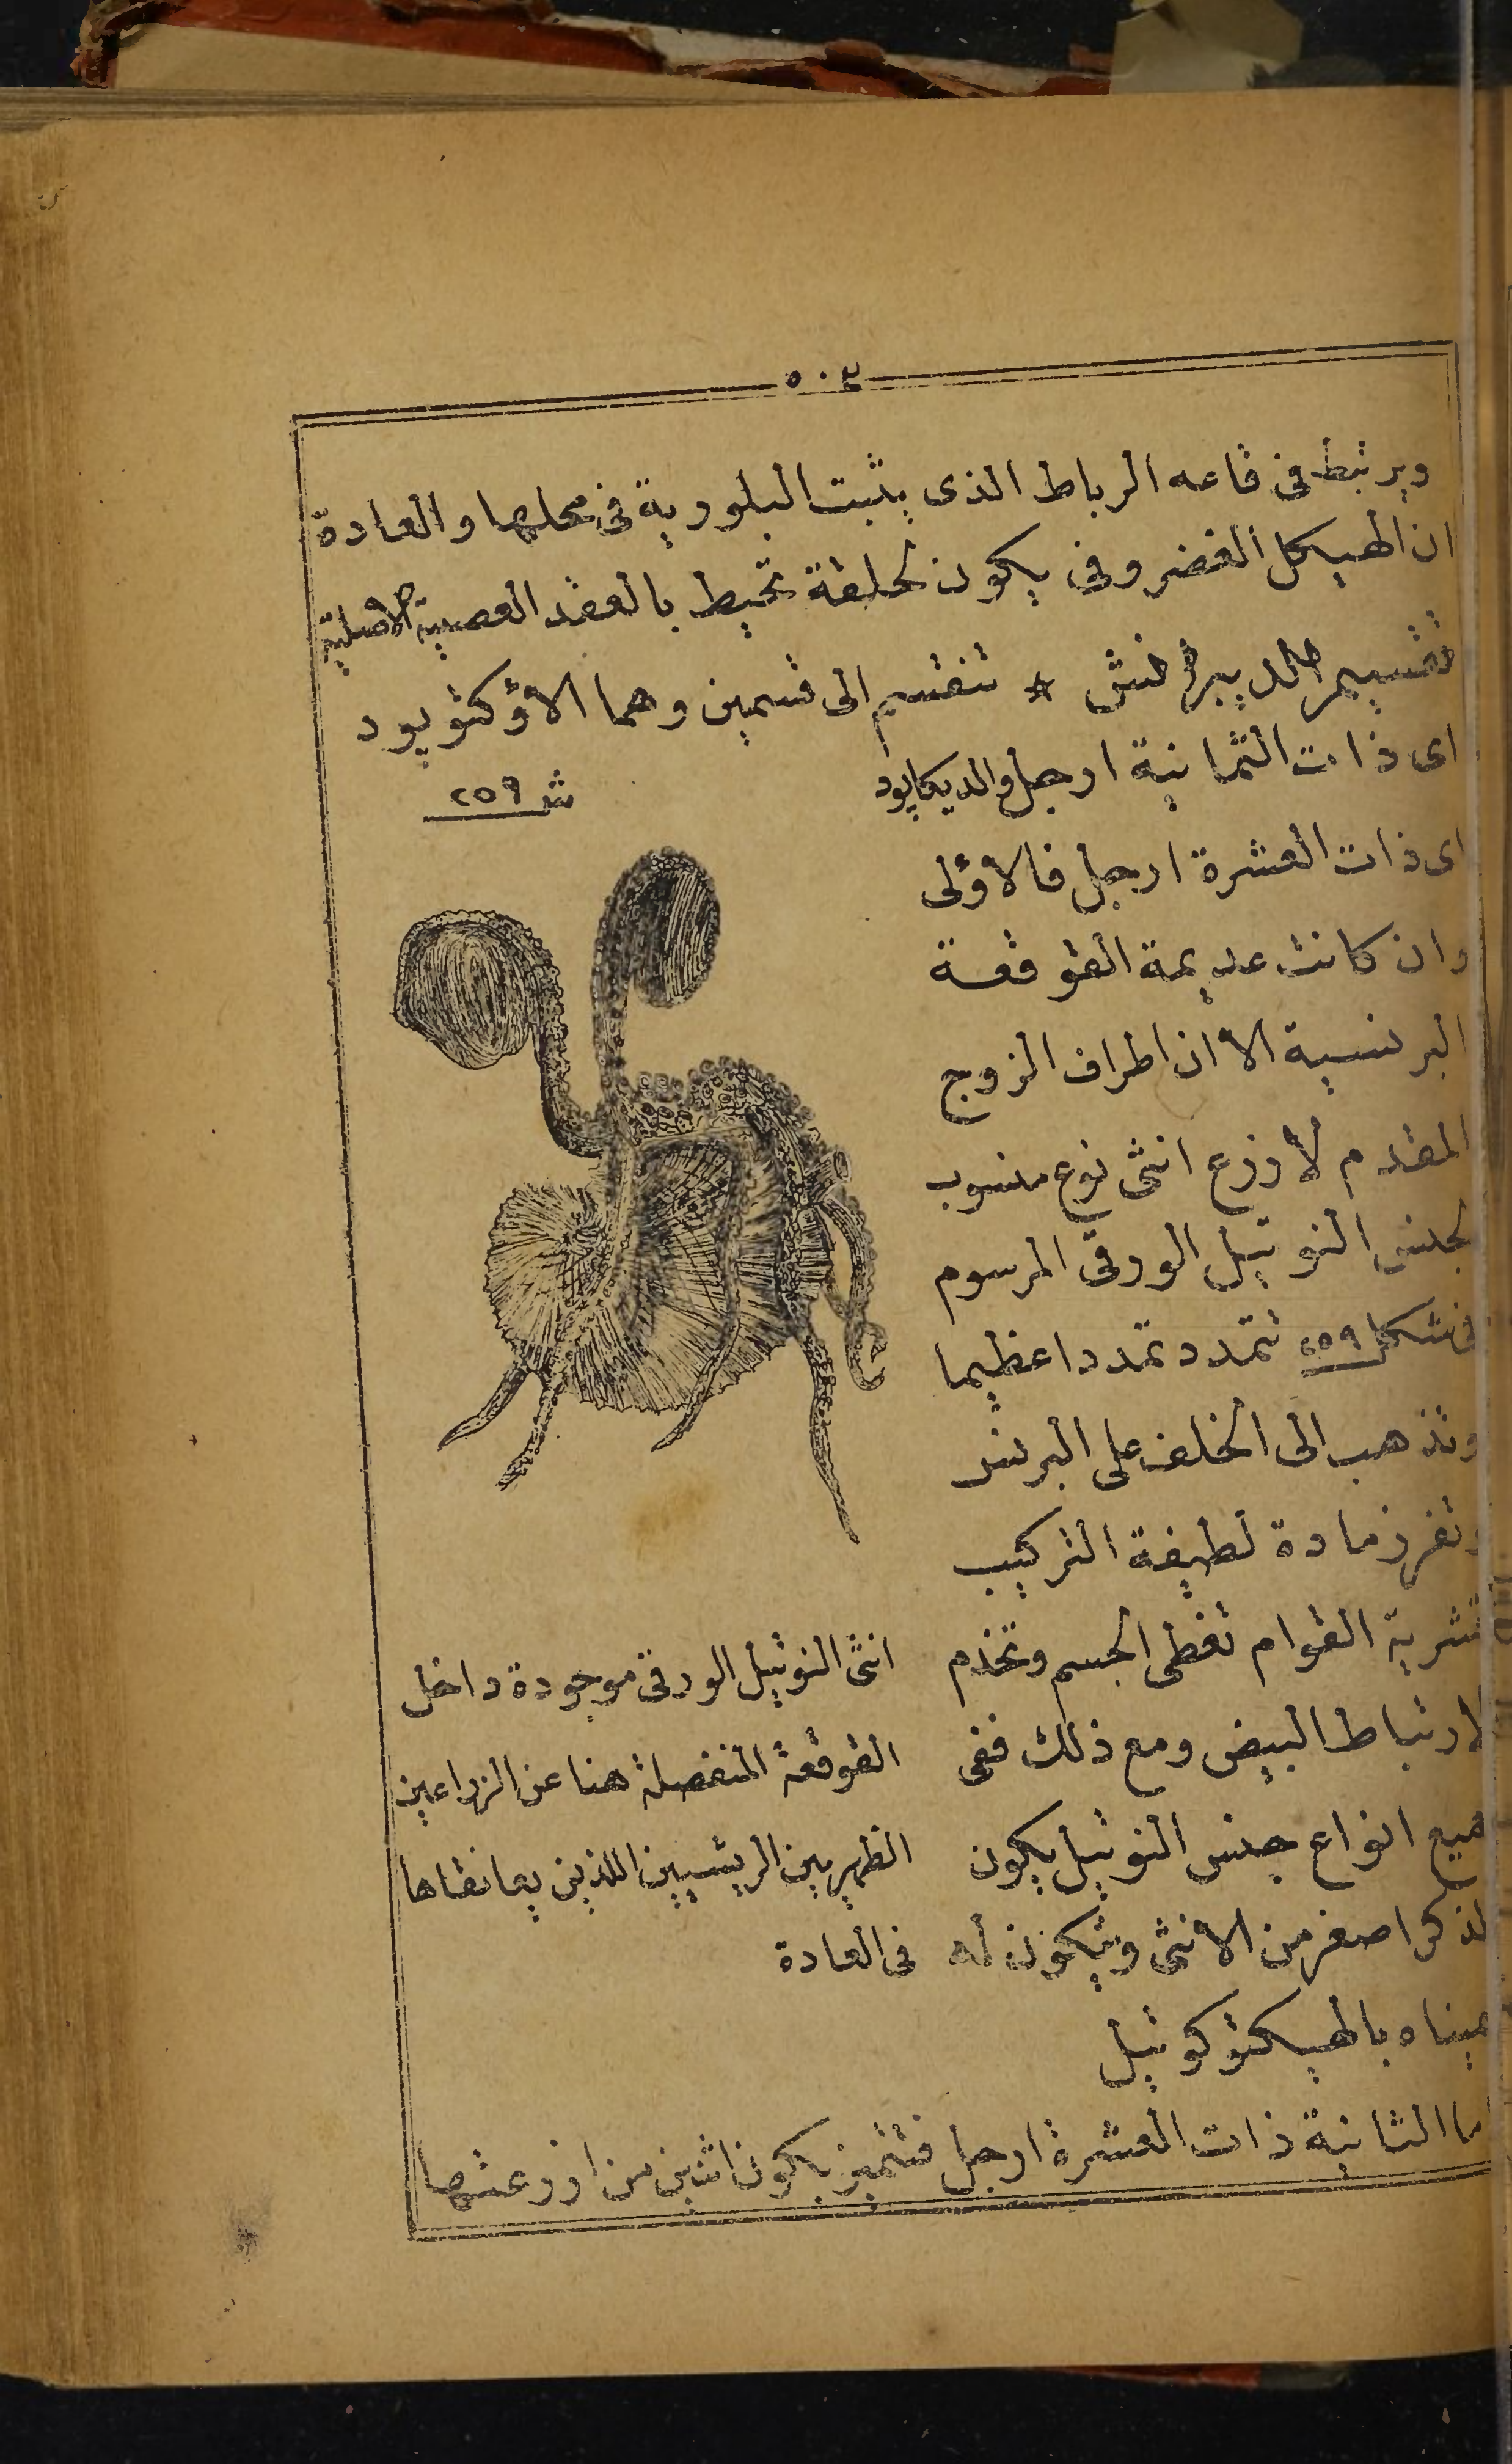 ٥٠٤
ويرتبط فى قاعه الرباط الذى يثبت البلورية فى محلها والعادة
ان الهيكل الغضروفى يكون كحلقة تحيط بالعقد العصبية الاصلية
تقسيم الديبرانش * تنقسم الى قسمين وهما الاؤكتوبود
اى ذات الثمانية ارجل والديكابود
اى ذات العشرة ارجل فالاؤلى
وان كانت عديمة القوقعة
البرنسية الا ان اطراف الزوج
المقدم لاذرع انثى نوع منسوب
لجنس النوتيل الورقى المرسوم
فى شكل ٢٥٩ تتمدد تمددا عظيما
وتذهب الى الخلف على البرنس
وتفرز مادة لطيفة التركيب
قشرية القوام تغطى الجسم وتخدم
لارتباط البيض ومع ذلك ففى
جميع انواع جنس النوتيل يكون
الذكر اصغر من الانثى ويتكون له
بالهيكتوكوتيل
اما الثانية ذات العشرة ارجل فتتميز بكون اثنين من اذرعتها
ش ٢٥٩
انثى النوتيل الورقى موجودة داخل
القوقعة المنفصلة هنا عن الزراعين
الظهريين الريشيين اللذين يعانقاها
فى العادة